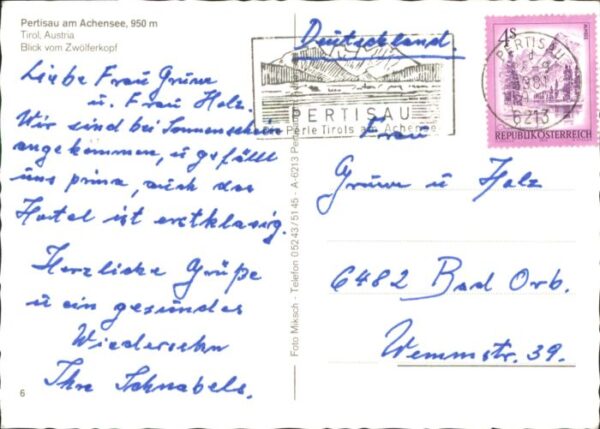 Pertisau am Achensee, 950 m
Tirol, Austria
Blick vom Zwölferkopf
Liebe Frau Gruwe
u. Frau Holz.
Wir sind bei Sonnenschein
angekommen, u gefällt
uns prima, auch das
Hotel ist erstklassig.
Herzliche Grüße
u ein gesundes
Wiedersehn
Ihre Schnabels.
6
Foto Miksch - Telefon 05243/5145 - A-6213 Pe
Deutschland.
PERTISAU
Perle Tirols am Achensee
PERTISAU
6213
4S
REPUBLIK ÖSTERREICH
Frau
Gruwe u Holz
6482 Bad Orb.
Wemmstr. 39.